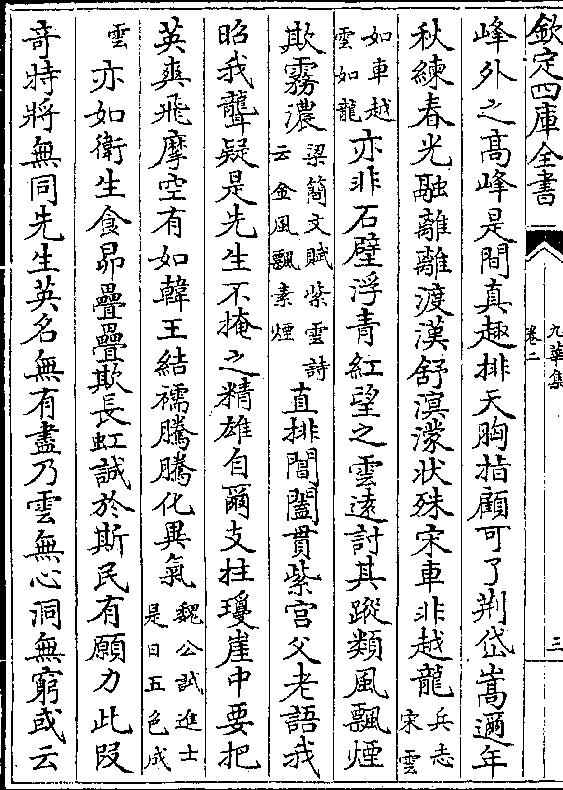 欽定四庫全書
九華集
卷二
三
峰外之髙峰是間真趣排天胸指顧可了荆岱嵩邇年
秋練春光融離離渡漢舒溟濛狀殊宋車非越龍兵志宋雲
如車越雲如龍亦非石壁浮青紅望之雲逺討其蹤類風飄煙
欺霧濃梁簡文賦紫雲詩云金風飄素煙直排閶闔貫紫宫父老語我
昭我聾疑是先生不掩之精雄自爾支拄瓊崖中要把
英爽飛摩空有如韓王結襦騰騰化異氣魏公試進士是日五色成
雲亦如衛生食昴疊疊欺長虹誠於斯民有願力此段
竒特將無同先生英名無有盡乃雲無心洞無窮或云